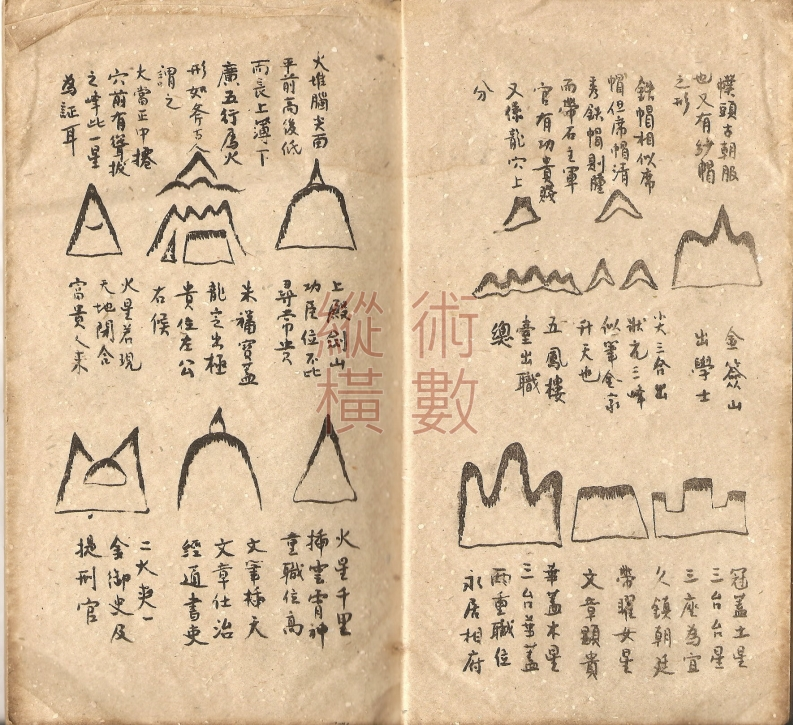 幞頭古朝服
也又有紗帽
之形
鉄帽相似席
帽但席帽清
秀鉄帽則腫
而帶石主軍
官有功貴賤
又係龍穴上
分
金簽山
出學士
三台出
狀元三峰
似筆金
升天也
五鳳樓
臺出職
總
冠蓋土星
三台台星
三座為宜
久鎮朝廷
帶曜女星
文章顕貴
華蓋木星
三台華蓋
兩重職位
永居相府
火堆腦尖面
平前高後低
而長上薄下
廣五行為火
形如斧
謂之
大當正中
穴前有聳拔
之峰此一星
為証耳
上殿劍山
功臣位不比
尋常貴
米福寶蓋
龍之出極
貴位左公
右候
火星若現
天地閉合
富貴人来
火星千里
插雲霄神
童職位高
文筆插天
文章仕治
經通書吏
二火夾一
金御史及
提刑官
術數
縱橫